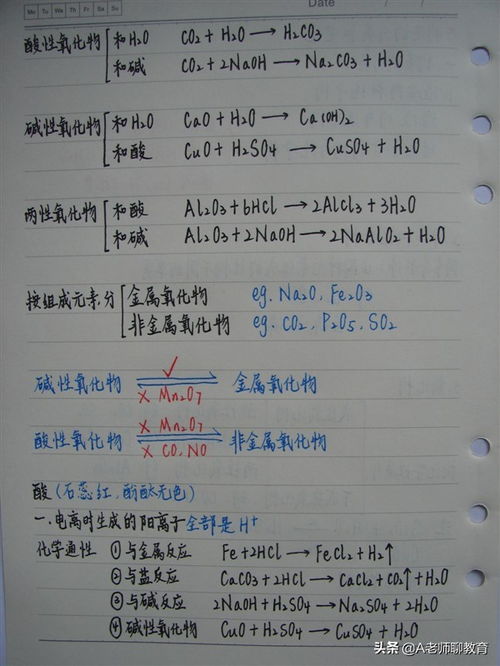 Mo Tu We Th Fr Sa Su Date
酸性氧化物 和H₂O CO₂ + H₂O → H₂CO₃
和碱 CO₂ + 2NaOH → Na₂CO₃ + H₂O
碱性氧化物 和H₂O CaO + H₂O → Ca(OH)₂
和酸 CuO + H₂SO₄ → CuSO₄ + H₂O
两性氧化物 和酸 Al₂O₃ + 6HCl → 2AlCl₃ + 3H₂O
和碱 Al₂O₃ + 2NaOH → 2NaAlO₂ + H₂O
按组成元素分 金属氧化物 eg. Na₂O, Fe₂O₃
非金属氧化物 eg. CO₂, P₂O₅, SO₂
✓
碱性氧化物 ⇌ 金属氧化物
× Mn₂O₇
× Mn₂O₇
酸性氧化物 ⇌ 非金属氧化物
× CO, NO
酸(石蕊红,酚酞无色)
一.电离时生成的阳离子全部是H⁺
化学通性 ①与金属反应 Fe + 2HCl → FeCl₂ + H₂↑
②与盐反应 CaCO₃ + 2HCl → CaCl₂ + CO₂↑ + H₂O
③与碱反应 2NaOH + H₂SO₄ → Na₂SO₄ + 2H₂O
④碱性氧化物 CuO + H₂SO₄ → CuSO₄ + H₂O
头条 @A老师聊教育